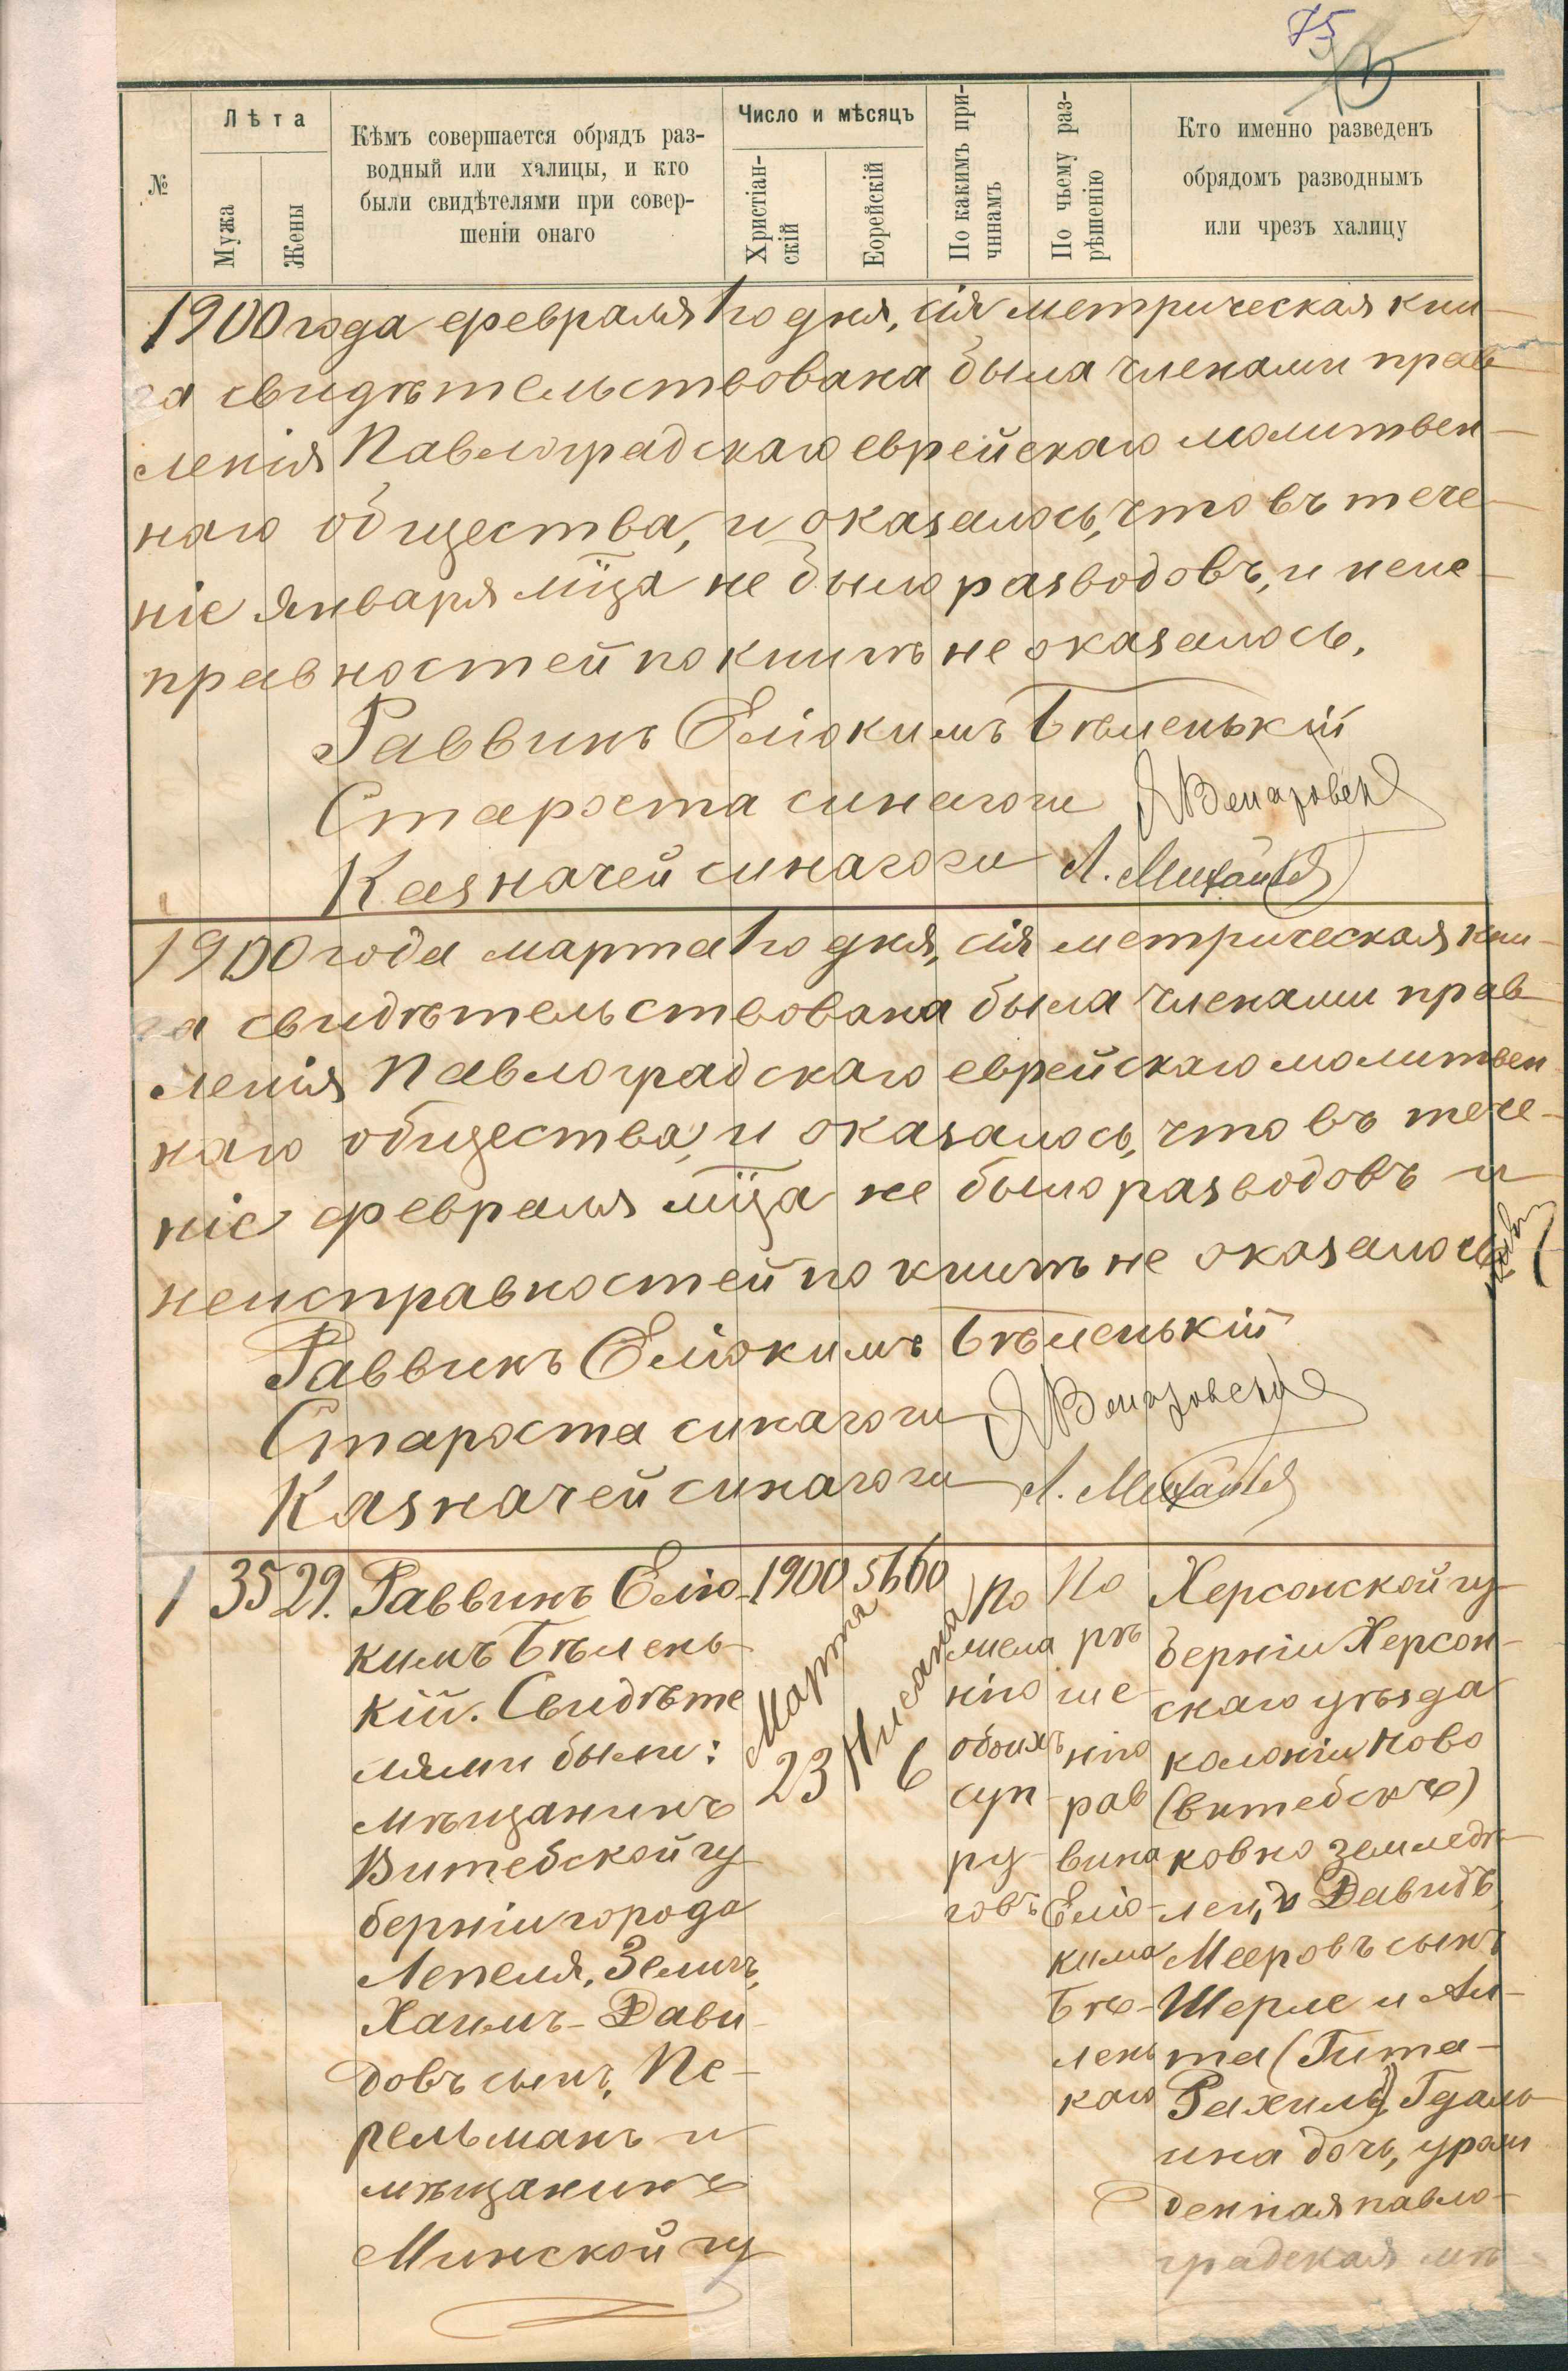 75
№
Лѣта
Мужа
Жены
Кѣмъ совершается обрядъ раз-
водный или халицы, и кто
были свидѣтелями при совер-
шеніи онаго
Число и мѣсяцъ
Христіан-
скій
Еорейскій
По какимъ при-
чинамъ
По чьему раз-
рѣшенію
Кто именно разведенъ
обрядомъ разводнымъ
или чрезъ халицу
1900 года февраля 1го дня, сія метрическая кни-
га свидѣтельствована была членами прав
ленія Павлоградскаго еврейскаго молитвен-
наго общества, и оказалось, что въ тече-
ніе января мца не было разводовъ, и неис-
правностей по книгѣ не оказалось.
Раввинъ Еліокимъ Бѣленькій
Староста синагоги
Казначей синагоги Л.
1900 года марта 1го дня, сія метрическая кни-
га свидѣтельствована была членами прав
ленія Павлоградскаго еврейскаго молитвен
наго общества, и оказалось, что въ тече-
ніе февраля мца не было разводовъ и
неисправностей по книгѣ не оказалось
Раввинъ Еліокимъ Бѣленькій
Староста синагоги
Казначей синагоги Л.
1
35
29.
Раввинъ Еліо-
кимъ Бѣлень-
кій. Свидѣте
лями были:
мѣщанинъ
Витебской гу
берніи города
Лепеля, Зелигъ,
Хаимъ-Дави-
довъ сынъ, Пе-
рельманъ и
мѣщанинъ
Минской гу
1900
Марта
23
5660
Нисана
6
По
жела
нію
обоихъ
суп-
ру-
говъ
По
рѣ
ше-
нію
рав
вина
Еліо-
кима
Бѣ-
лень
каго
Херсонской гу-
берніи Херсон-
скаго уѣзда
колоніи Ново
(витебскъ)
ковно земледѣ-
лец, Давидъ,
Мееровъ сынъ
Шерле и Ал-
та (Гита-
Рахиль), Гдаль
ина дочь, урож
денная павло-
градская мѣ